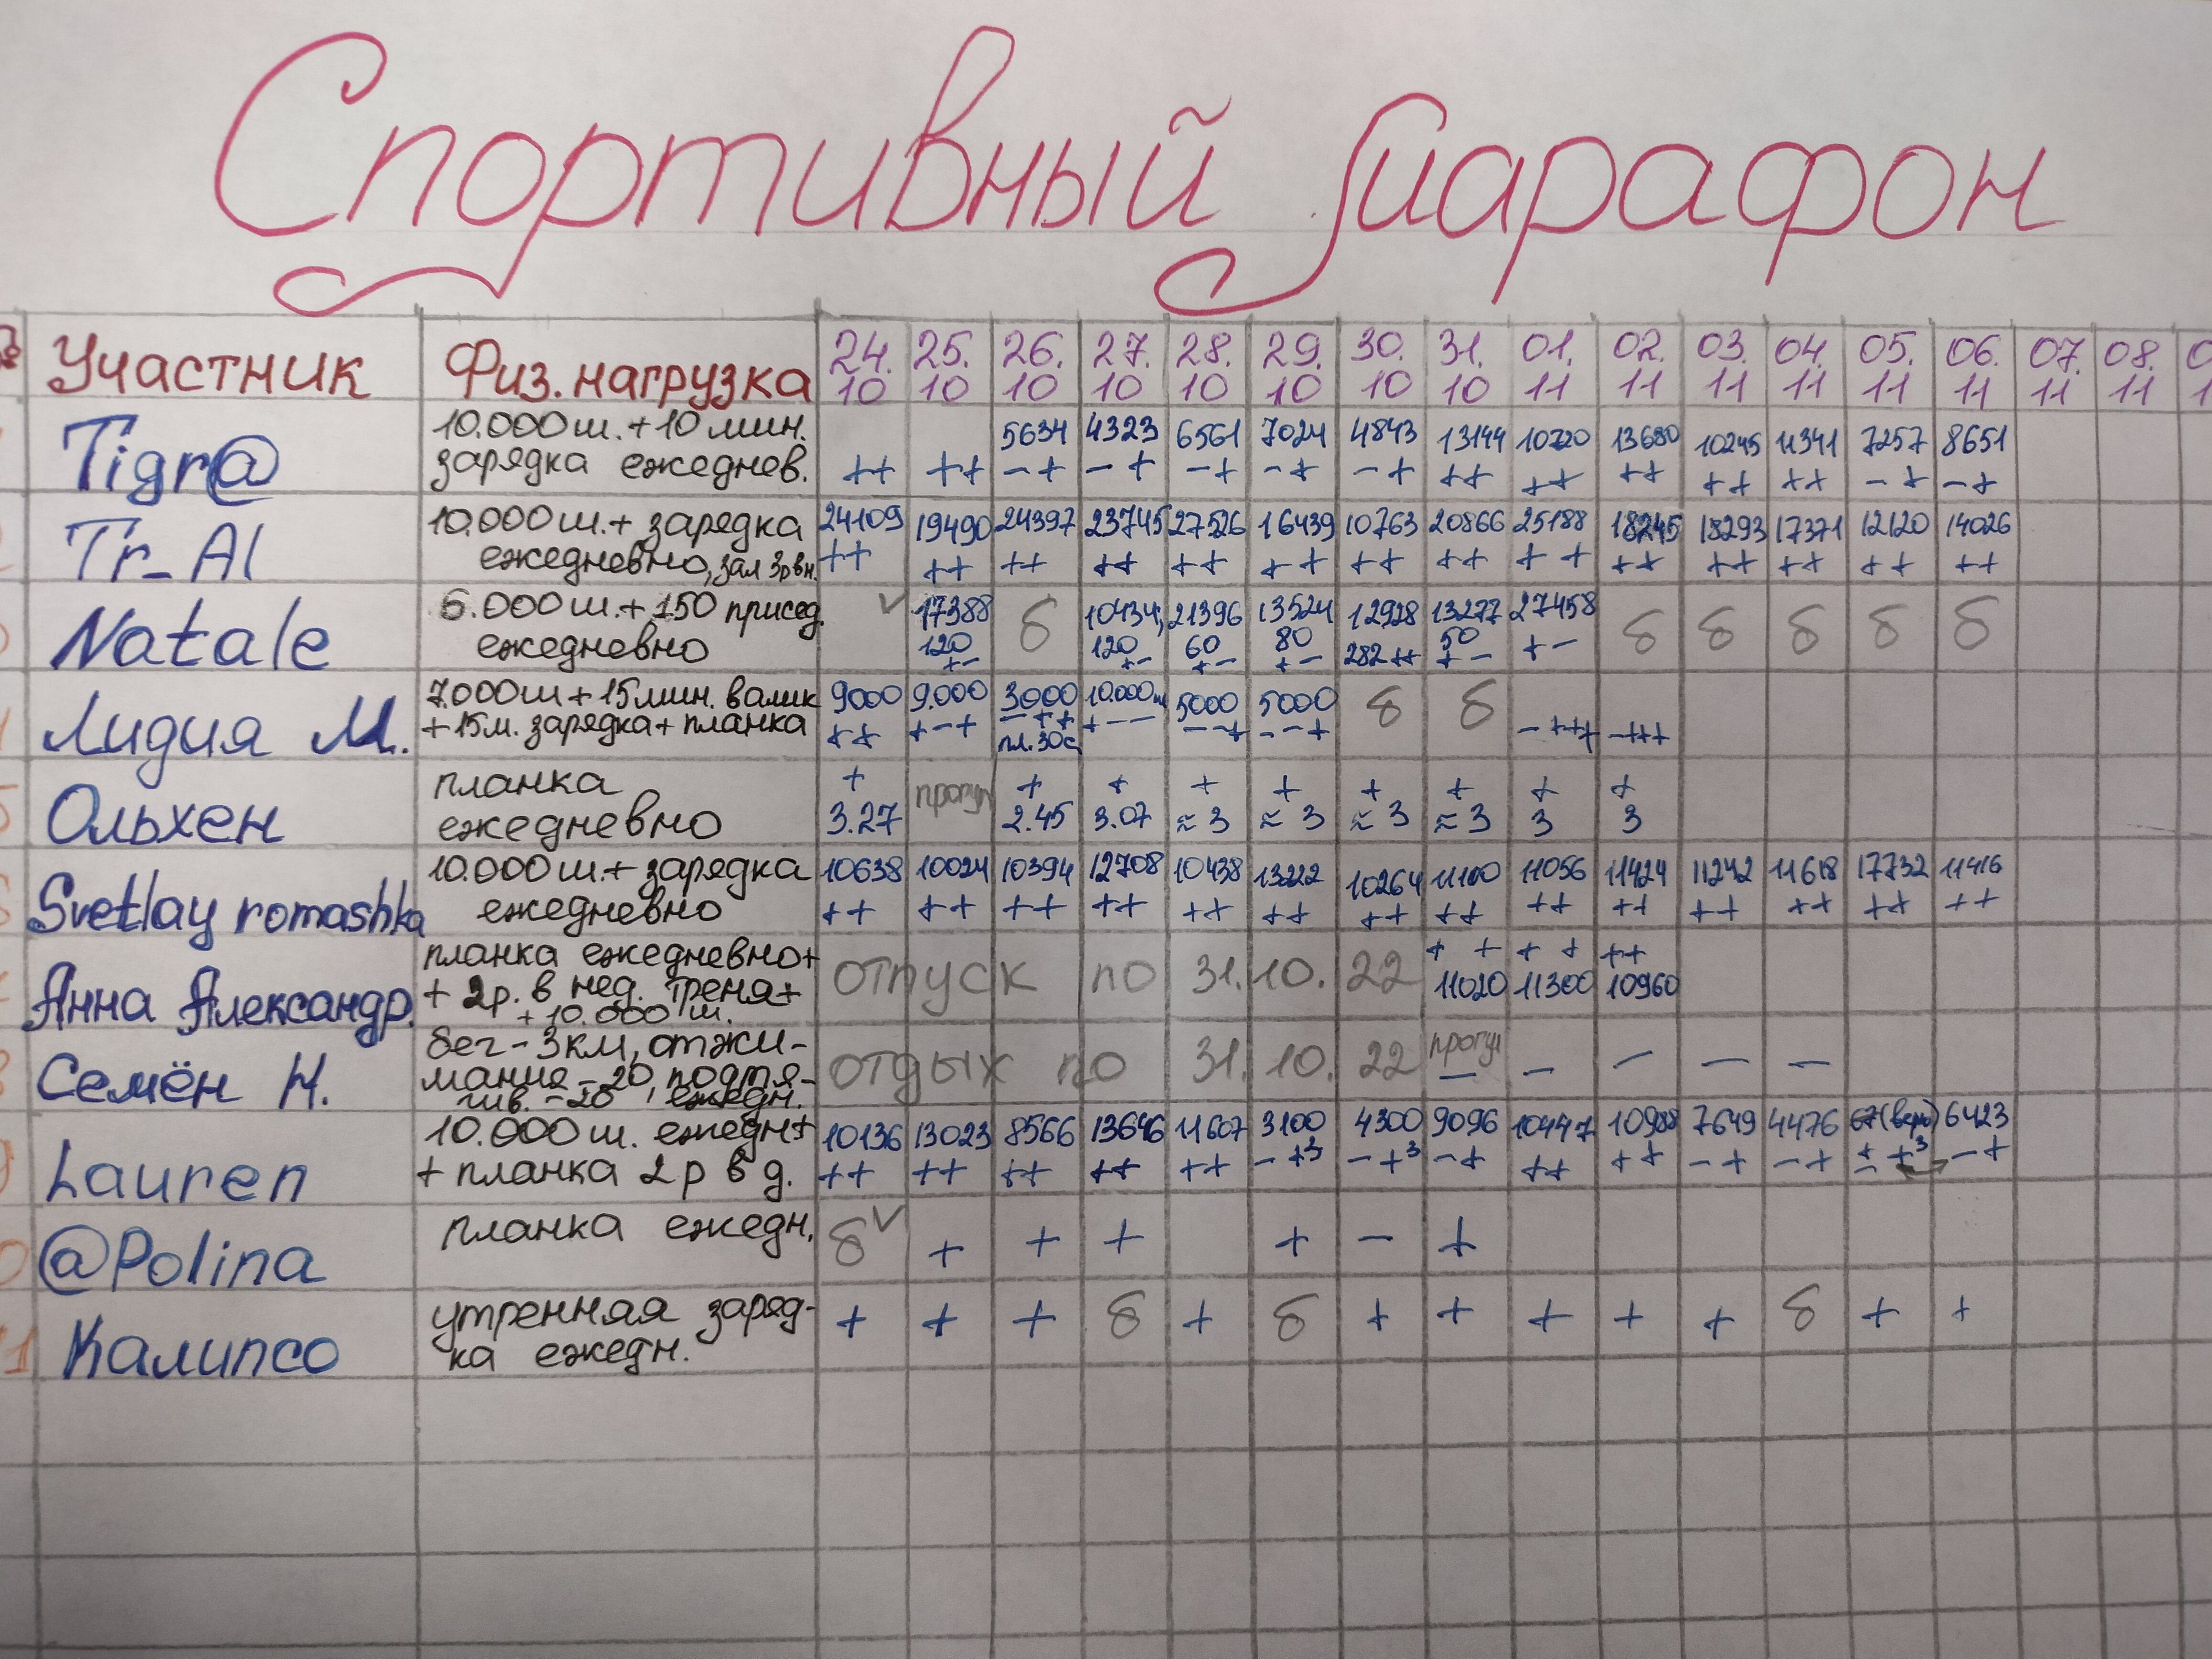 Спортивный марафон
№ Участник Физ. нагрузка 24.10 25.10 26.10 27.10 28.10 29.10 30.10 31.10 01.11 02.11 03.11 04.11 05.11 06.11 07.11 08.11
10.000 ш. + 10 мин. 5634 4323 6561 7024 4843 13144 10720 13680 10245 11341 7257 8651
Tigr@ зарядка ежеднев. ++ ++ -+ -+ -+ -+ -+ ++ ++ ++ ++ ++ -+ -+
10.000 ш. + зарядка 24109 19490 24397 23745 27526 16439 10763 20866 25188 18245 18293 17371 12120 14026
Tr_Al ежедневно, зал 3р вн. ++ ++ ++ ++ ++ ++ ++ ++ ++ ++ ++ ++ ++ ++
6.000 ш. + 150 присед. ✓ 17388 б 10434, 21396 13524 12928 13277 27458 б б б б б
Natale ежедневно 120 120 60 80 282 ++ 50 +-
+- +- +- +- +-
7000 ш + 15 мин. валик 9000 9.000 3000 10.000 ш 5000 5000 б б
Лидия М. + 15 м. зарядка + планка ++ +-+ -++ +-- --+ --+ -+++ -+++
пл. 30с
планка + прогул + + + + + + + +
Ольхен ежедневно 3.27 2.45 3.07 ≈3 ≈3 ≈3 ≈3 3 3
10.000 ш. + зарядка 10638 10024 10394 12708 10438 13222 10264 11100 11056 11424 11242 11618 17732 11416
Svetlay romashka ежедневно ++ ++ ++ ++ ++ ++ ++ ++ ++ ++ ++ ++ ++ ++
планка ежедневно + ++ ++ ++
Анна Александр. + 2р. в нед. треня + отпуск по 31.10.22 11020 11300 10960
+ 10.000 ш.
бег - 3 км, отжи- прогул
Семён Н. мания - 20, подтя- отдых по 31.10.22 - - - - -
гив. - 20, ежедн.
10.000 ш. ежедн + 10136 13023 8566 13646 11607 3100 4300 9096 10447 10988 7649 4476 67(верх) 6423
Lauren + планка 2 р в д. ++ ++ ++ ++ ++ -+3 -+3 -+ ++ ++ -+ -+ ± +3 -+
@Polina планка ежедн. б ✓ + + + + - +
11 Калипсо утренняя заряд- + + + б + б + + + + + б + +
ка ежедн.